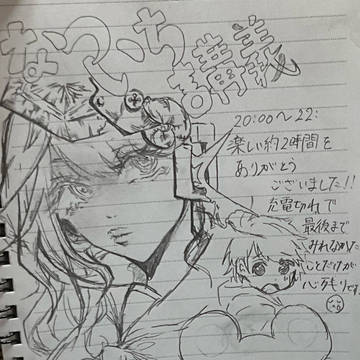 なつこっち
講義
20:00〜22:
楽しい約2時間を
ありがとう
ございました!!
充電切れで
最後まで
みれなかった
ことだけが
心残りです。